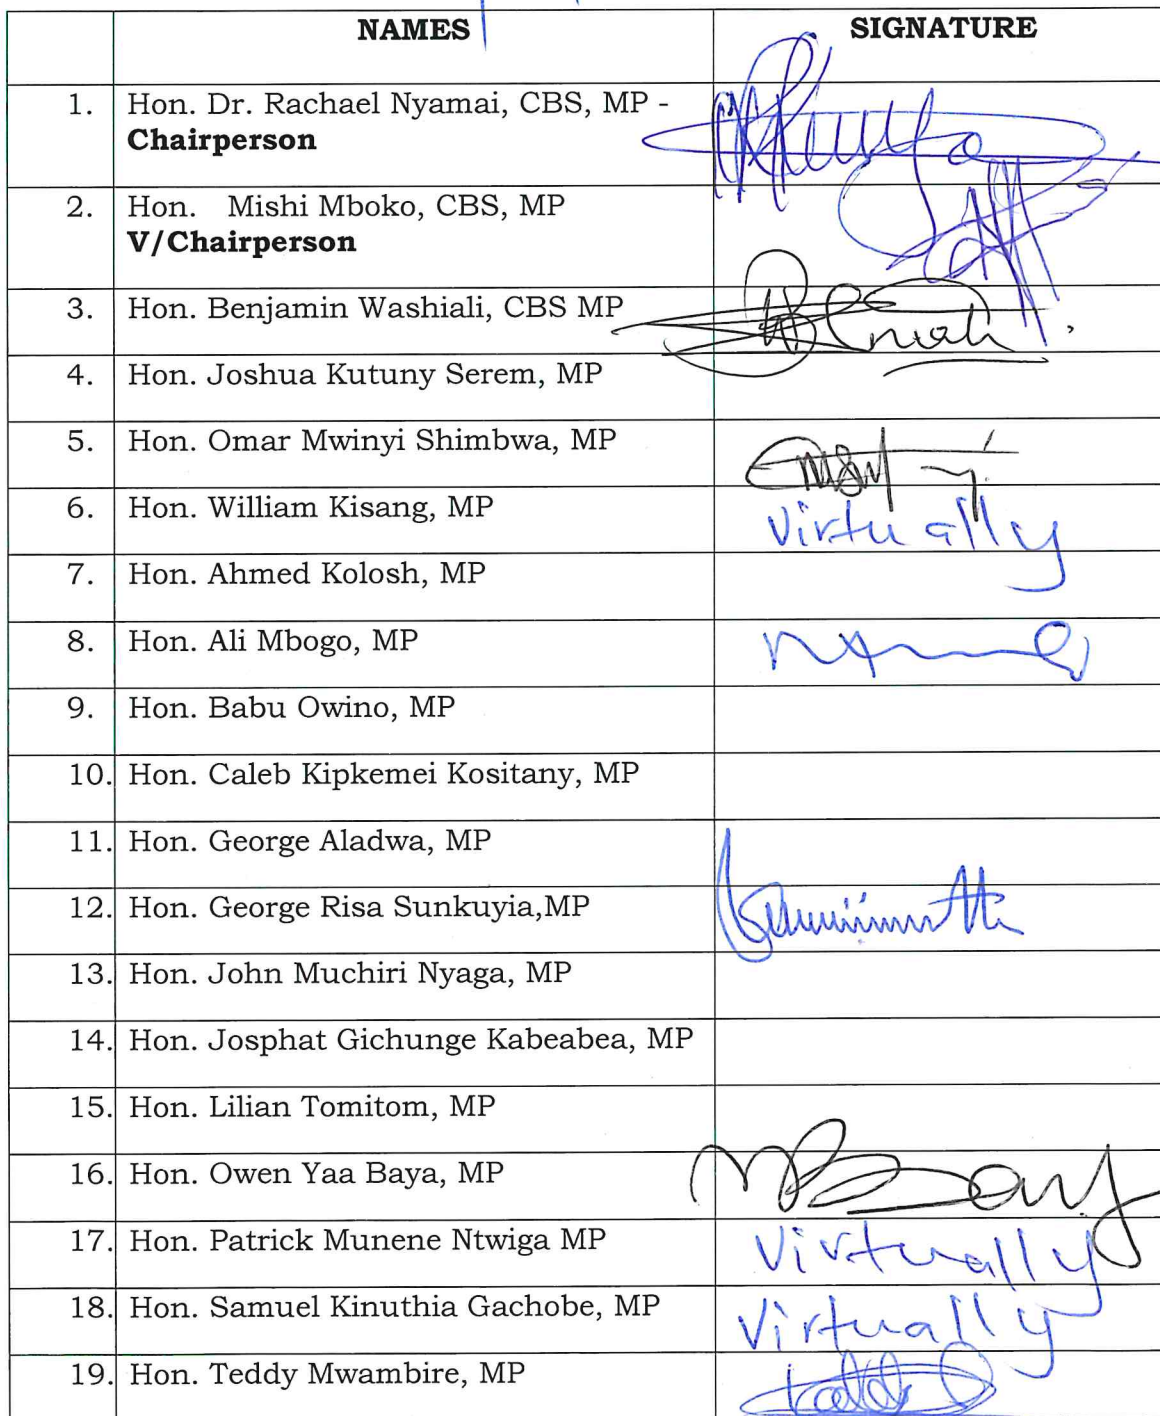 NAMES SIGNATURE
1. Hon. Dr. Rachael Nyamai, CBS, MP -
Chairperson
2. Hon. Mishi Mboko, CBS, MP
V/Chairperson
3. Hon. Benjamin Washiali, CBS MP
4. Hon. Joshua Kutuny Serem, MP
5. Hon. Omar Mwinyi Shimbwa, MP
6. Hon. William Kisang, MP Virtually
7. Hon. Ahmed Kolosh, MP
8. Hon. Ali Mbogo, MP
9. Hon. Babu Owino, MP
10. Hon. Caleb Kipkemei Kositany, MP
11. Hon. George Aladwa, MP
12. Hon. George Risa Sunkuyia,MP
13. Hon. John Muchiri Nyaga, MP
14. Hon. Josphat Gichunge Kabeabea, MP
15. Hon. Lilian Tomitom, MP
16. Hon. Owen Yaa Baya, MP
17. Hon. Patrick Munene Ntwiga MP Virtually
18. Hon. Samuel Kinuthia Gachobe, MP Virtually
19. Hon. Teddy Mwambire, MP